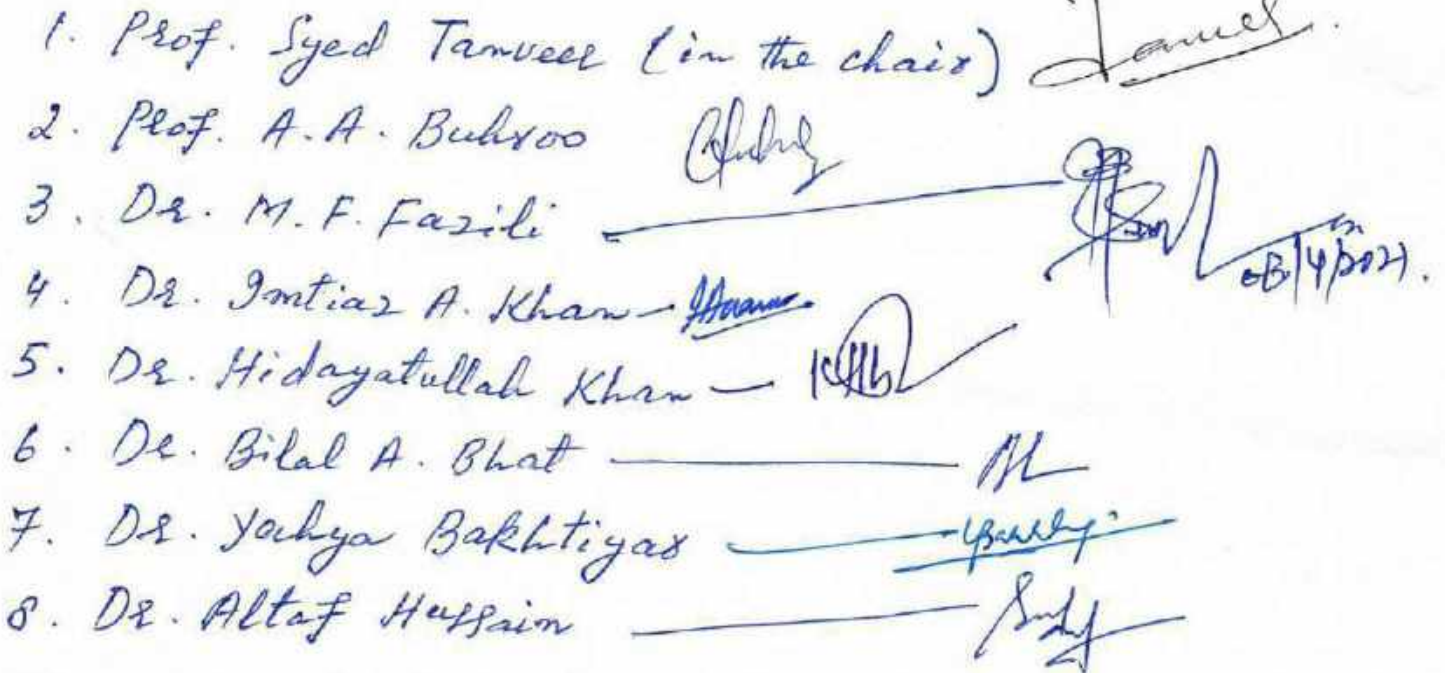 1. Prof. Syed Tanveer (in the chair)
2. Prof. A.A. Buhroo
3. Dr. M.F. Fazili
08/4/2021.
4. Dr. Imtiaz A. Khan
5. Dr. Hidayatullah Khan
6. Dr. Bilal A. Bhat
7. Dr. Yahya Bakhtiyar
8. Dr. Altaf Hussain